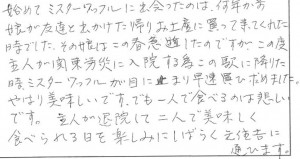 始めてミスターワッフルに出会ったのは、何年か前
娘が友達と出かけた帰りお土産に買って来てくれた
時でした。その娘はこの春急逝したのですが、この度
主人が関東労災に入院する為この駅に降りた
時ミスターワッフルが目に止まり早速買ひ求めました。
やはり美味しいです。でも一人で食べるのは悲しい
です。主人が退院して二人で美味しく
食べられる日を楽しみにしばらく元住吉に
通ひます。